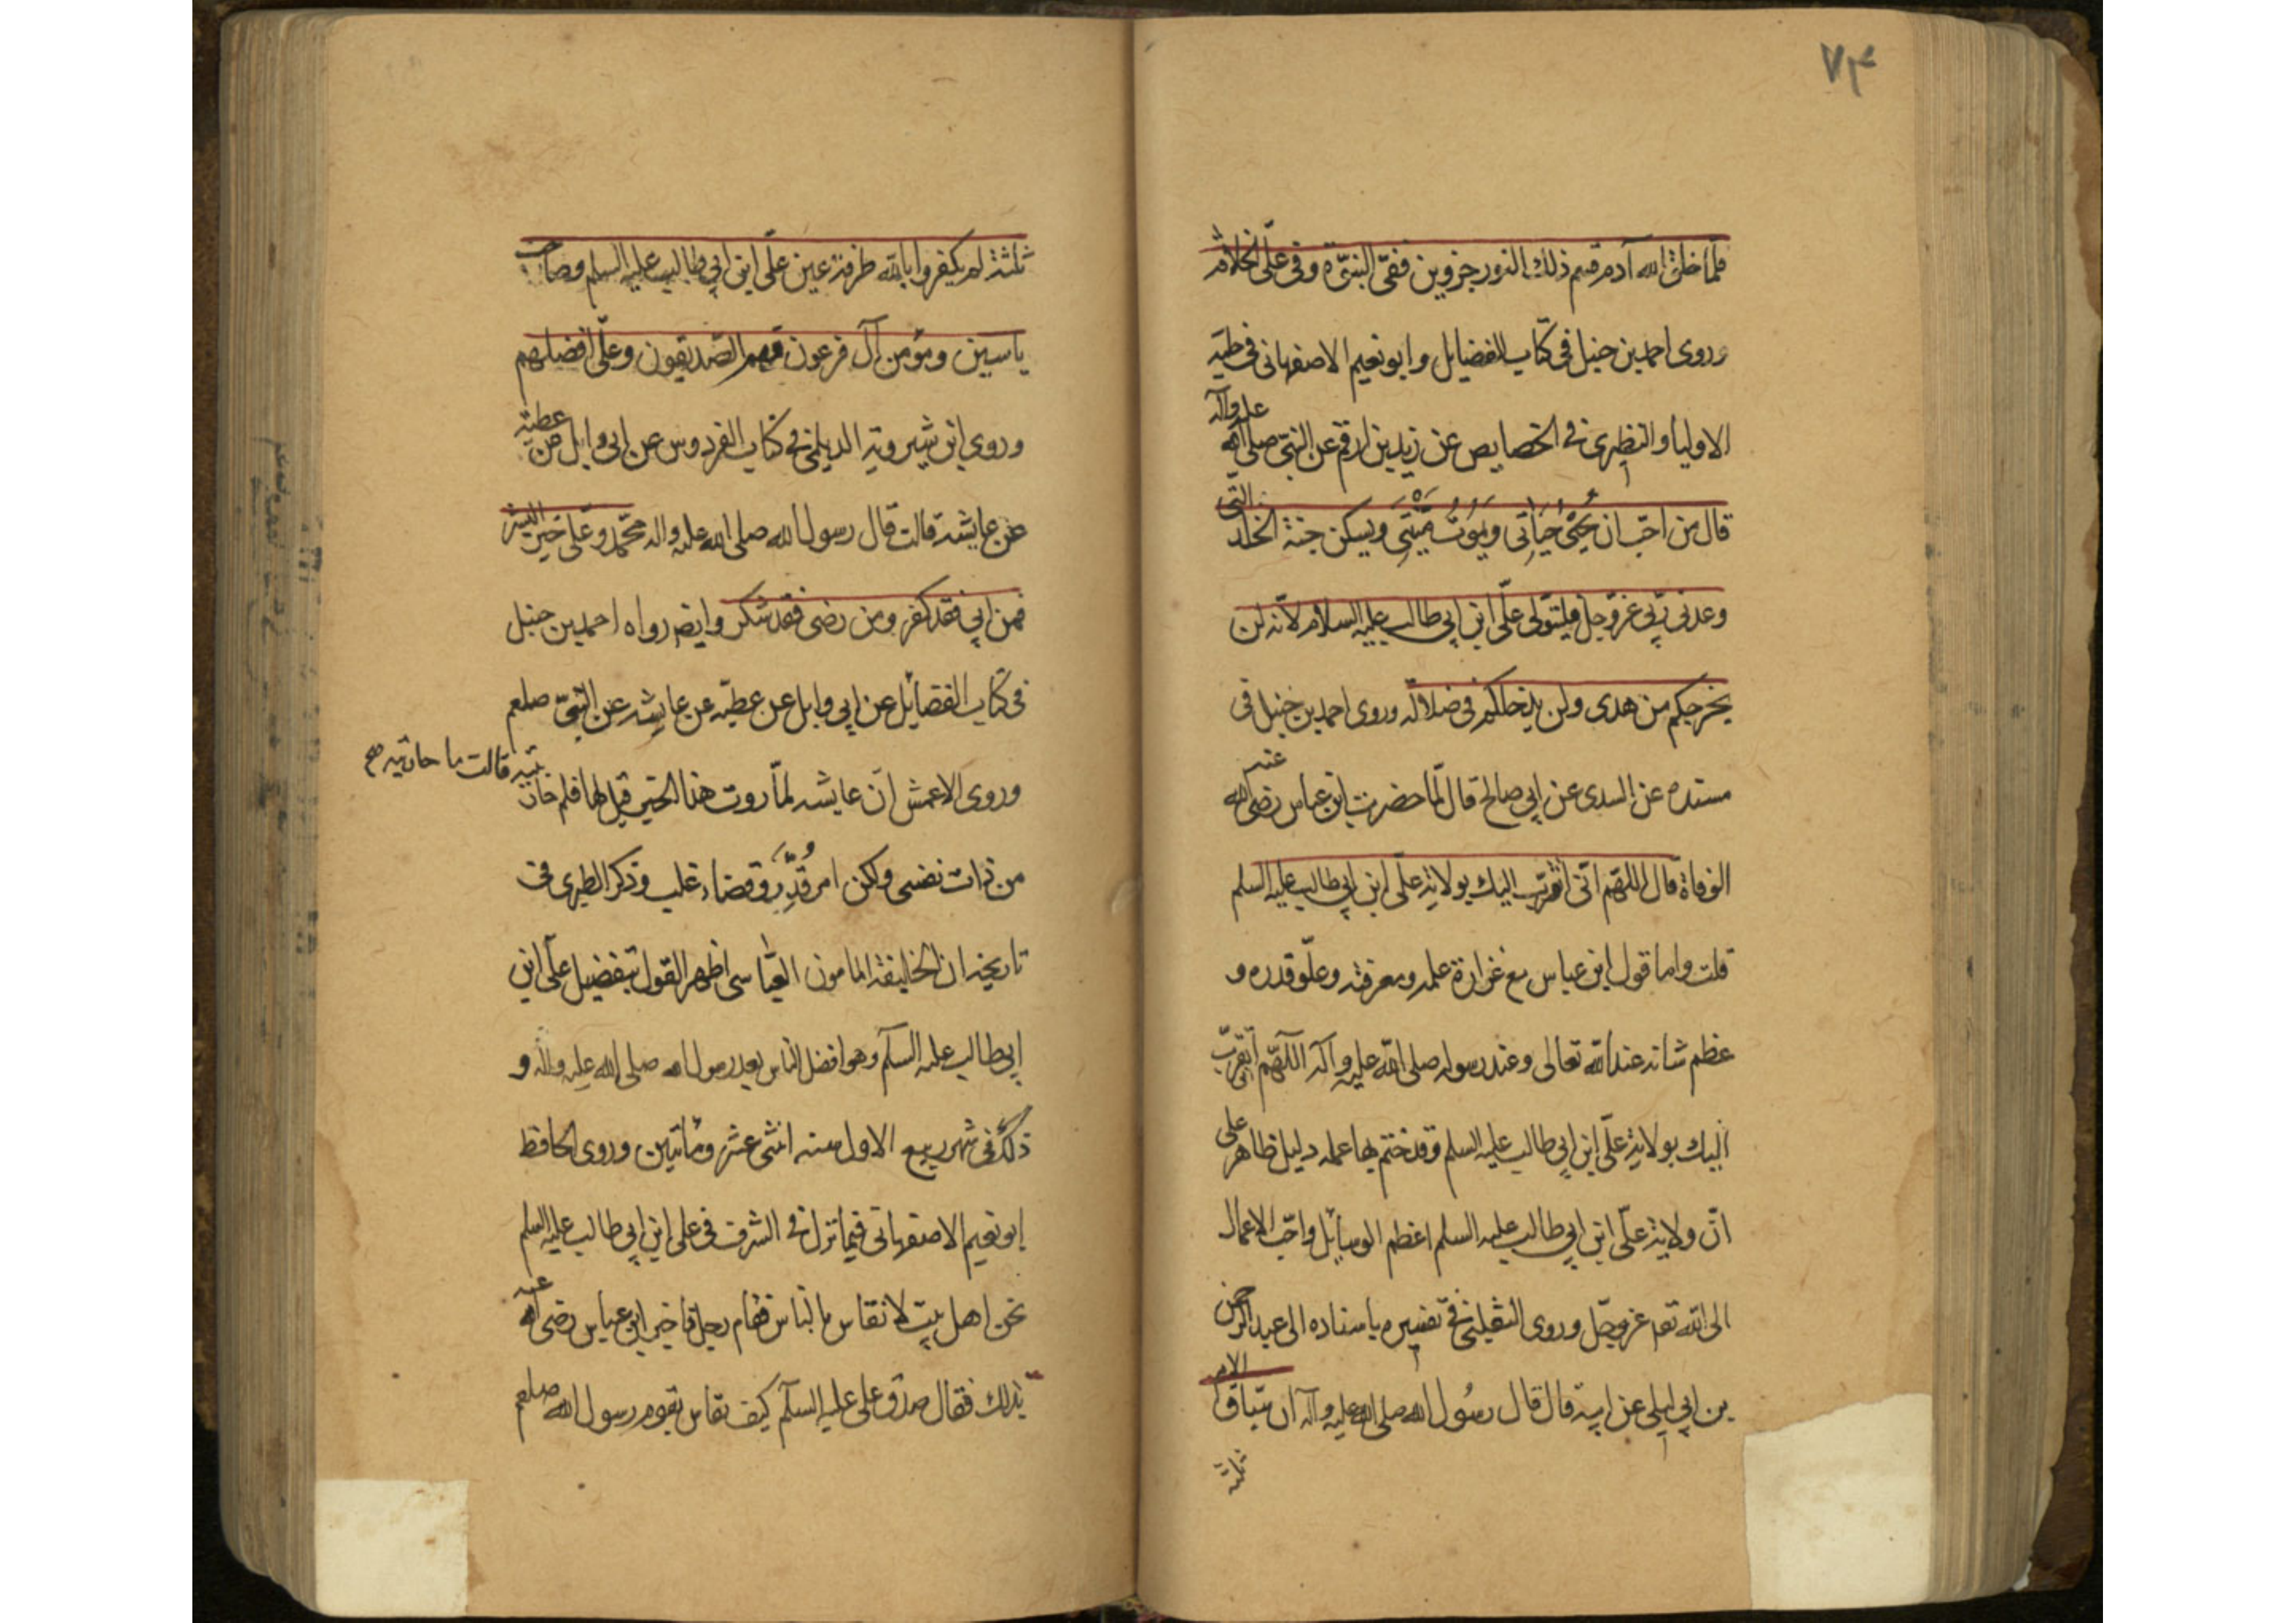 ۷۴
فلمّا خلق الله آدم قسم ذلك النور جزوين ففىّ النبوّة وفى علّى الخلافة
وروى احمد بن حنبل فى كتاب الفضايل وابو نعيم الاصفهانى فى حليه
الاوليا والنظرى فى الخصايص عن زيد بن ارقم عن النبى صلى الله عليه وآله
قال من احبّ ان يُحْيٰى حَيَاتِى ويَمُوتُ مَيْتَتِى ويسكن جنة الخلد التّى
وعدنى ربّى عزّوجل فليتولى علّى ابن ابى طالب عليه السلام لانّه لن
يخرجكم من هدى ولن يدخلكم فى ضلاله وروى احمد بن حنبل فى
مسنده عن السدى عن ابى صالح قال لمّا حضرت ابن عباس رضى الله عنه
الوفاة قال اللهّم انّى اتقرّب اليك بولاية علّى ابن ابى طالب عليه السلم
قلت واما قول ابن عباس مع غزارة علمه ومعرفته وعلّو قدره و
عظم شانه عند الله تعالى وعند رسوله صلى الله عليه وآله اللّهّم اتقرّب
اليك بولاية علّى ابن ابى طالب عليه السلم وقد ختم بها عمله دليل ظاهر على
انّ ولاية علّى ابن ابى طالب عليه السلم اعظم الوسائل واحّب الاعمال
الى الله تعه عزوجّل وروى الثعلبى فى تفسيره باسناده الى عبد الرحمن
بن ابى ليلى عن ابيه قال قال رسُول الله صلى الله عليه وآله ان سبّاق الامم
ثلثة
ثلثة لم يكفروا بالله طرفة عين علّى ابن ابى طالب عليه السلم وصاحب
ياسين ومؤمن آل فرعون فهم الصّديقون وعلّى افضلهم
وروى ابن شيرويه الديلمى فى كتاب الفردوس عن ابى وايل عن عطيّه
عن عايشه قالت قال رسول الله صلى الله عليه واله محّمد وعلّى خير البشر
فمن ابى فقد كفر ومن رضى فقد شكر وايضر رواه احمد بن حنبل
فى كتاب الفضائل عن ابى وايل عن عطيّه عن عايشه عن النبىّ صلعم
وروى الاعمش انّ عايشه لمّا روت هذا الخبر قيل لها فلم حاربتيه قالت ما حاربته صح
من ذات نفسى ولكن امر قُدِّرَ وقضاء غلب وذكر الطبرى فى
تاريخه ان الخليفة المامون العبّاسى اظهر القول بتفضيل علّى ابن
ابى طالب عليه السلّم وهو افضل الناس بعد رسول الله صلى الله عليه وآله و
ذلك فى شهر ربيع الاول سنه اثنى عشر ومأتين وروى الحافظ
ابو نعيم الاصفهانى فيما نزل فى الشرف فى على ابن ابى طالب عليه السلم
نحن اهل بيت لا نقاس بالناس فقام رجل فاخبر ابن عباس رضى الله عنه
بذلك فقال صدق على عليه السلّم كيف يقاس بقوم رسول الله صلعم